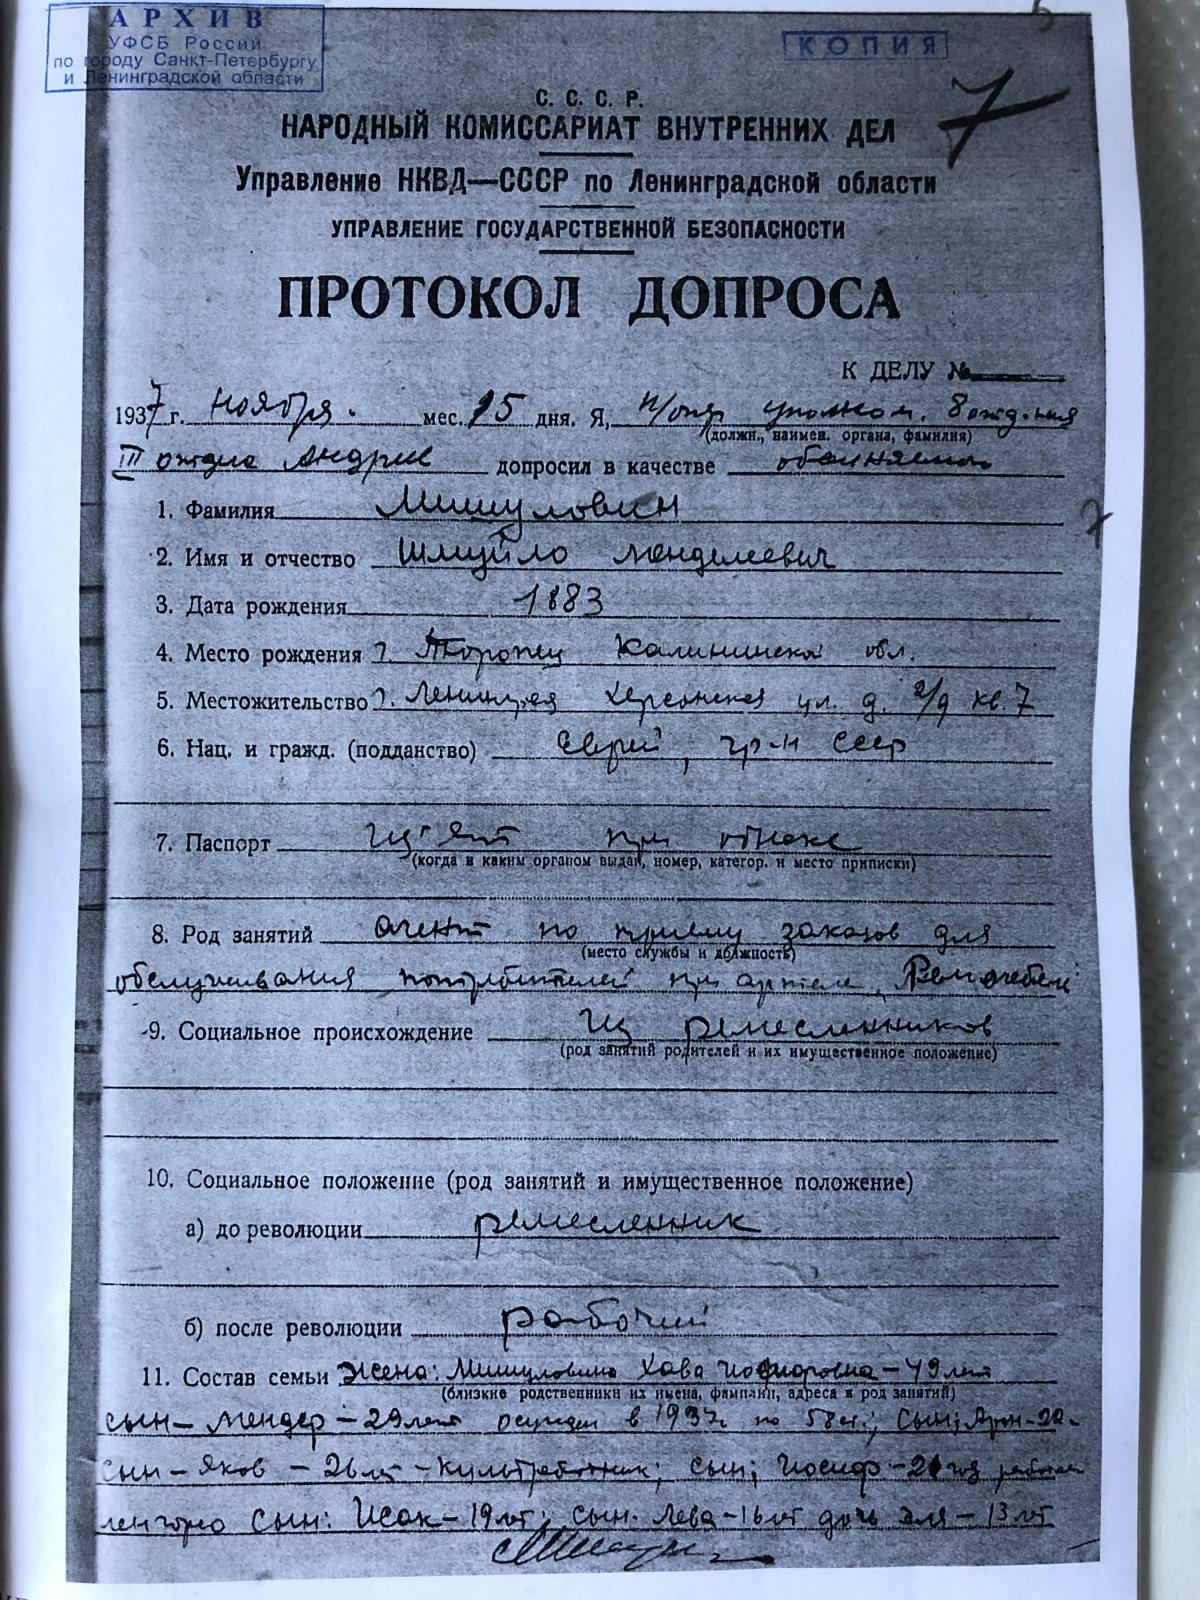 АРХИВ
УФСБ России
по городу Санкт-Петербургу
и Ленинградской области
КОПИЯ
7
С. С. С. Р.
НАРОДНЫЙ КОМИССАРИАТ ВНУТРЕННИХ ДЕЛ
Управление НКВД—СССР по Ленинградской области
УПРАВЛЕНИЕ ГОСУДАРСТВЕННОЙ БЕЗОПАСНОСТИ
ПРОТОКОЛ ДОПРОСА
К ДЕЛУ №
1937 г. ноября мес. 15 дня. Я, п/опер уполном. 8 отд-ния
(должн., наимен. органа, фамилия)
III отдела Андреев допросил в качестве обвиняемого
1. Фамилия Мишулович
7
2. Имя и отчество Шмуйло Менделевич
3. Дата рождения 1883
4. Место рождения г. Торопец Калининской обл.
5. Местожительство г. Ленинград Херсонская ул. д. 2/9 кв. 7
6. Нац. и гражд. (подданство) Еврей, гр-н СССР
7. Паспорт Из'ят при обыске
(когда и каким органом выдан, номер, категор. и место приписки)
8. Род занятий агент по приему заказов для
(место службы и должность)
обслуживания потребителей при артели
9. Социальное происхождение Из ремесленников
(род занятий родителей и их имущественное положение)
10. Социальное положение (род занятий и имущественное положение)
а) до революции ремесленник
б) после революции рабочий
11. Состав семьи Жена: Мишуловина Хава - 49 лет
(близкие родственники их имена, фамилии, адреса и род занятий)
сын - Мендер - 29 лет осужден в 193 г. по 58 ст.; Сын; Арон-22-
сын - Яков - 26 лет - культработник; сын; Иосиф-21 год
Сын: Исак - 19 лет; сын. Лева - 16 лет дочь Эля - 13 лет